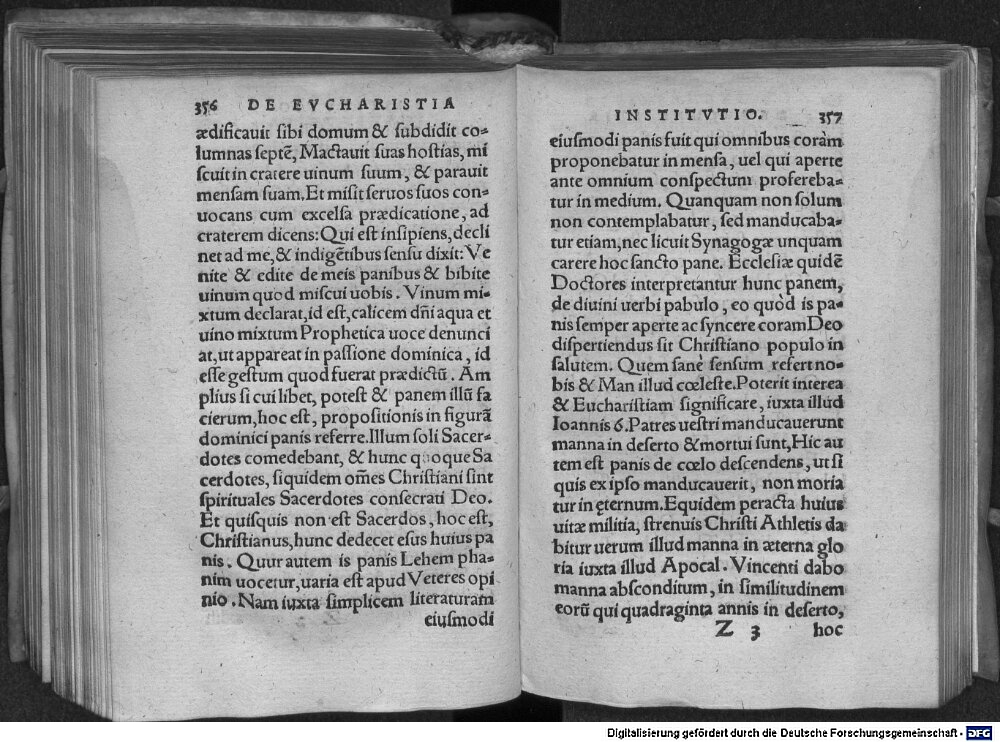 356 DE EVCHARISTIA
ædificauit sibi domum & subdidit co-
lumnas septē, Mactauit suas hostias, mi
scuit in cratere uinum suum, & parauit
mensam suam. Et misit seruos suos con-
uocans cum excelsa prædicatione, ad
craterem dicens: Qui est insipiens, decli
net ad me, & indigētibus sensu dixit: Ve
nite & edite de meis panibus & bibite
uinum quod miscui uobis. Vinum mi-
xtum declarat, id est, calicem dñi aqua et
uino mixtum Prophetica uoce denunci
at, ut appareat in passione dominica, id
esse gestum quod fuerat prædictū. Am
plius si cui libet, potest & panem illū fa
cierum, hoc est, propositionis in figurā
dominici panis referre. Illum soli Sacer-
dotes comedebant, & hunc quoque Sa
cerdotes, siquidem oēs Christiani sint
spirituales Sacerdotes consecrati Deo.
Et quisquis non est Sacerdos, hoc est,
Christianus, hunc dedecet esus huius pa
nis. Quur autem is panis Lehem pha-
nim uocetur, uaria est apud Veteres opi
nio. Nam iuxta simplicem literaturam
eiusmodi
INSTITVTIO. 357
eiusmodi panis fuit qui omnibus coràm
proponebatur in mensa, uel qui aperte
ante omnium conspectum profereba-
tur in medium. Quanquam non solum
non contemplabatur, sed manducaba-
tur etiam, nec licuit Synagogæ unquam
carere hoc sancto pane. Ecclesiæ quidē
Doctores interpretantur hunc panem,
de diuini uerbi pabulo, eo quòd is pa-
nis semper aperte ac syncere coram Deo
dispertiendus sit Christiano populo in
salutem. Quem sanè sensum refert no-
bis & Man illud cœleste. Poterit interea
& Eucharistiam significare, iuxta illud
Ioannis 6. Patres uestri manducauerunt
manna in deserto & mortui sunt, Hic au
tem est panis de cœlo descendens, ut si
quis ex ipso manducauerit, non moria
tur in ęternum. Equidem peracta huius
uitæ militia, strenuis Christi Athletis da
bitur uerum illud manna in æterna glo
ria iuxta illud Apocal. Vincenti dabo
manna absconditum, in similitudinem
eorū qui quadraginta annis in deserto,
Z 3 hoc
Digitalisierung gefördert durch die Deutsche Forschungsgemeinschaft - DFG